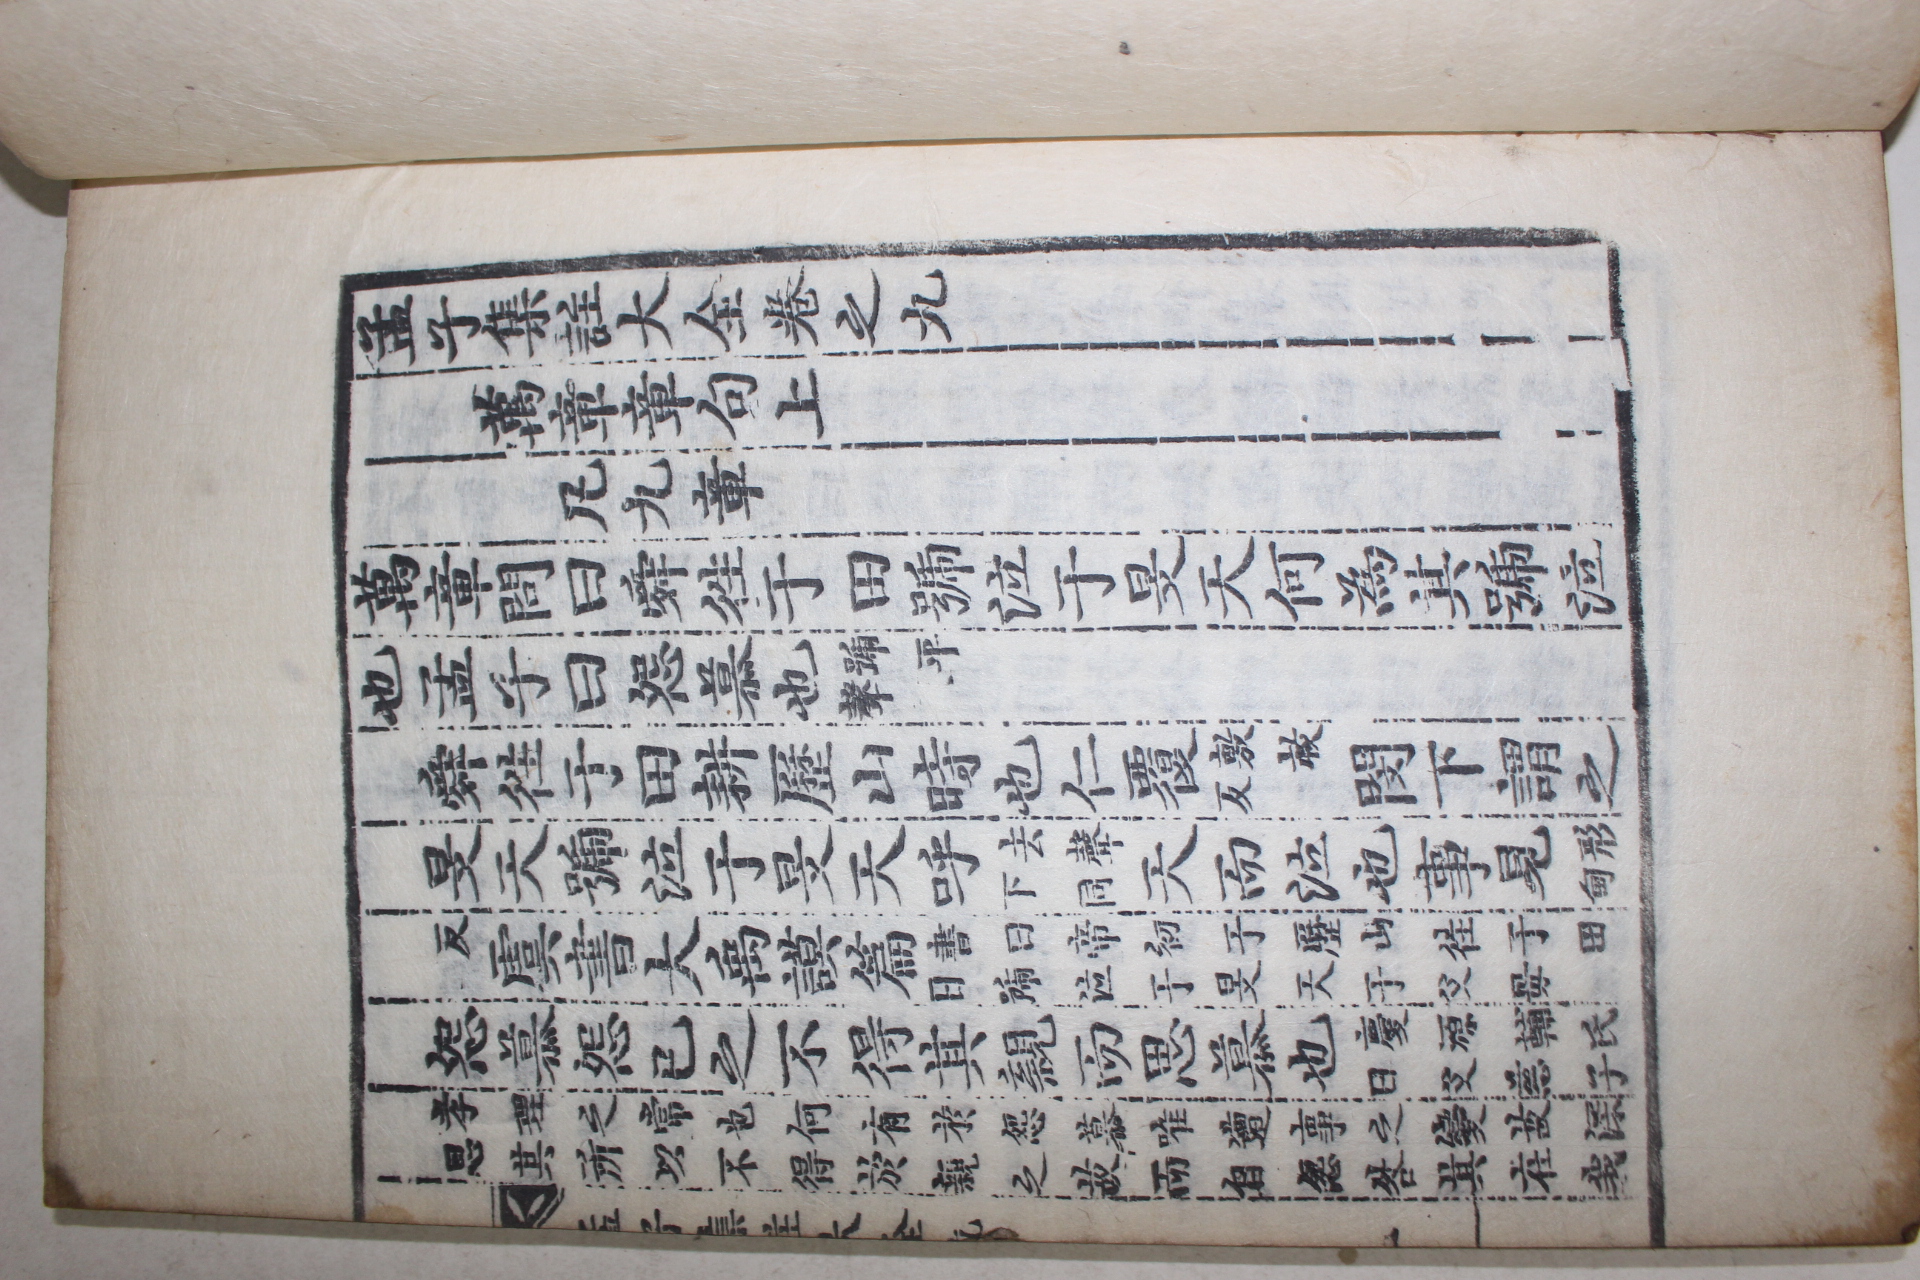 孟子集註大全卷之九
萬章章句上
凡九章
萬章問曰舜徃于田號泣于旻天何為其號泣
也孟子曰怨慕也號平聲
舜徃于田耕歷山時也仁覆敷救反閔下謂之
旻天號泣于旻天呼去聲下同天而泣也事見形甸
反虞書大禹謨篇書曰帝初于歷山徃于田日號泣于旻天于父母
怨慕怨已之不得其親而思慕也慶源輔氏曰父慈子
孝理之常也何有於怨慕唯遭事之變故深思其所以不得於親之故而自怨咎其在我
孟子集註大全